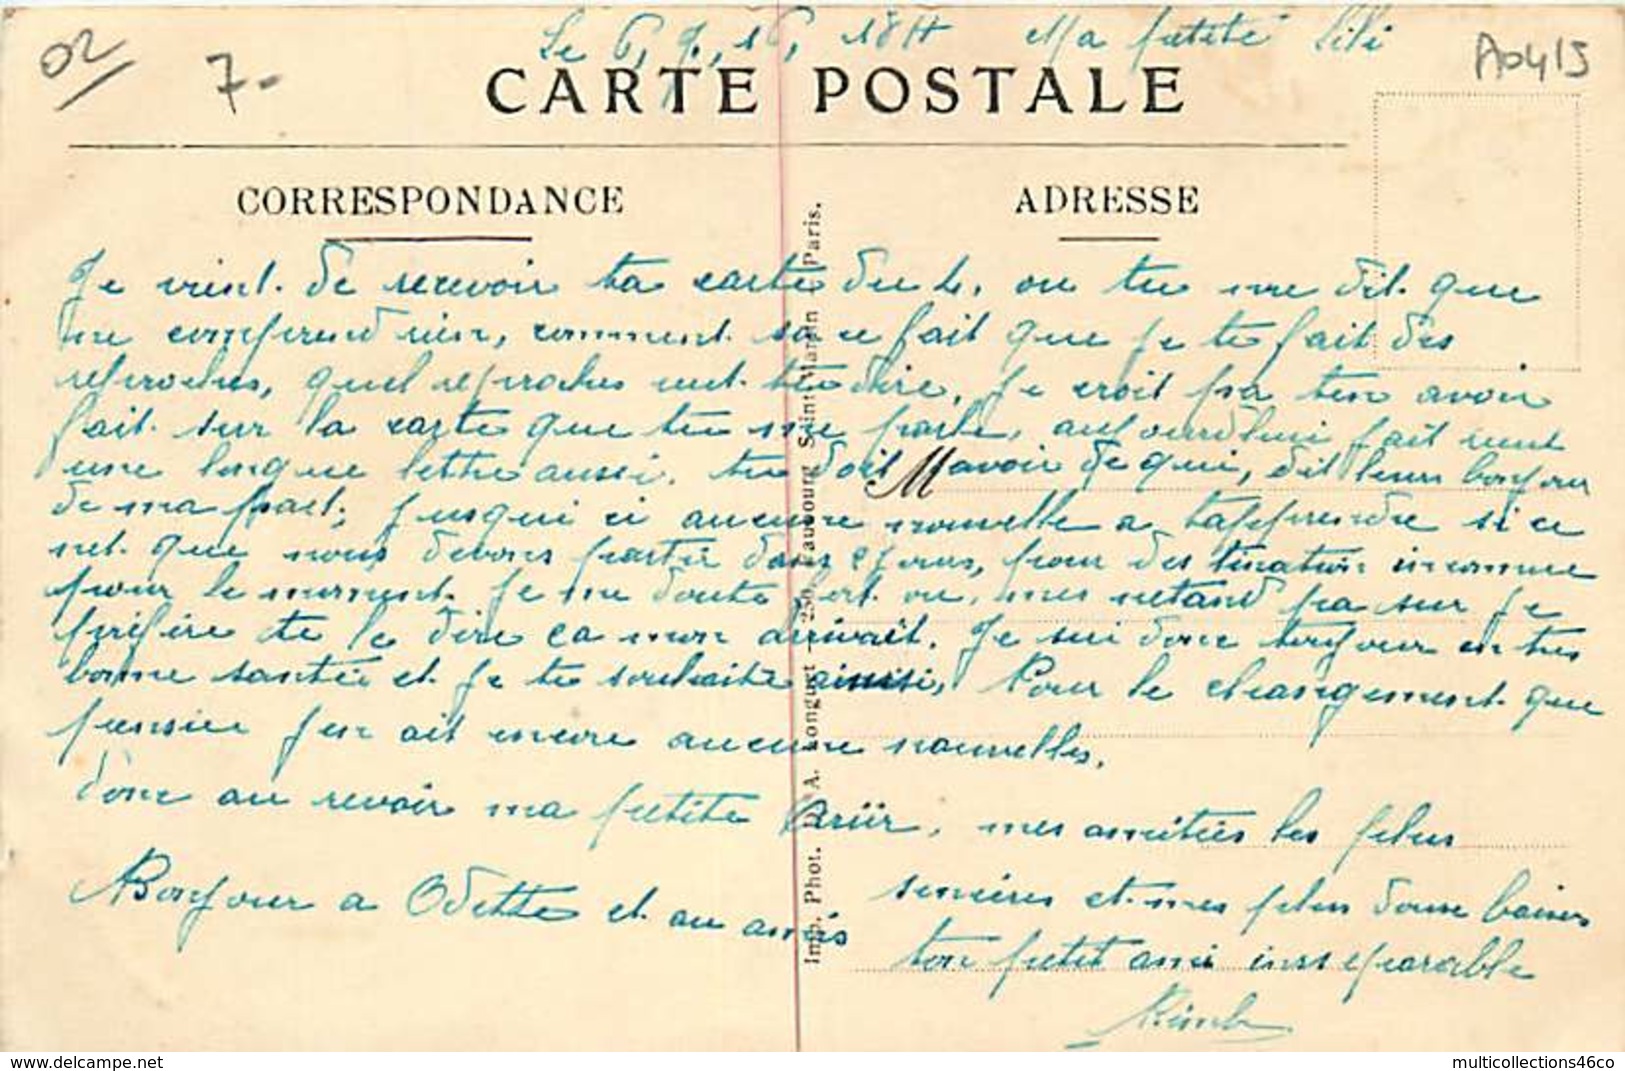 02
7-
Le 6, 9, 16, 18H Ma petite Lili
A0415
CARTE POSTALE
CORRESPONDANCE
ADRESSE
Je vient de recevoir ta carte du 4. ou tu me dit que
ne comprend rien, comment sa ce fait que je te fait des
reproches, quel reproches veut tu dire, Je croit pa ten avoir
fait sur la carte que tu me parle, aujourdhui fait
une longue lettre aussi, tu doit savoir de qui, dit leur bonjour
de ma part, Jusqui ci aucune nouvelle a tapprendre si ce
net que nous devons partir dans 2 jours, pour destination inconnue
pour le moment. Je me doute bet ou, mes netand pa sur Je
prefère te le dire ca mon arrivait. Je sui donc toujour en tres
bonne santée et Je te souhaite ainsi, Pour le changement que
pensier Jen ait encore aucune nouvelles.
donc au revoir ma petite mes amitiés les plus
sincères et mes plus doux baiser
Bonjour a Odette et au amis
ton petit ami inseparable
Imp. Phot. D. A. Longuet - 250, Faubourg Saint-Martin, Paris.
delcampe.net
multicollections46co